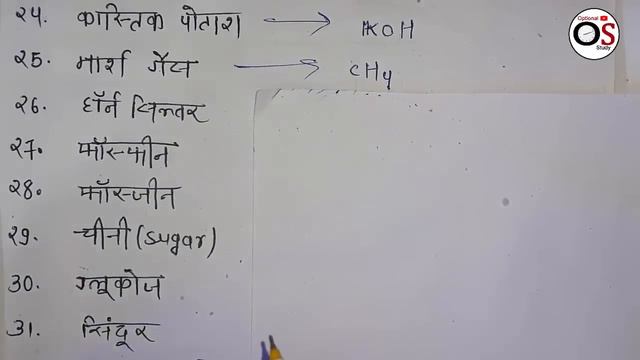 Optional
OS
Study
२४. कास्टिक पोटाश → KOH
२५. मार्श गैस → CH4
२६. हॉर्न सिल्वर
२७. फॉस्फीन
२८. फॉस्जीन
२९. चीनी (sugar)
30. ग्लूकोज
31. सिंदूर